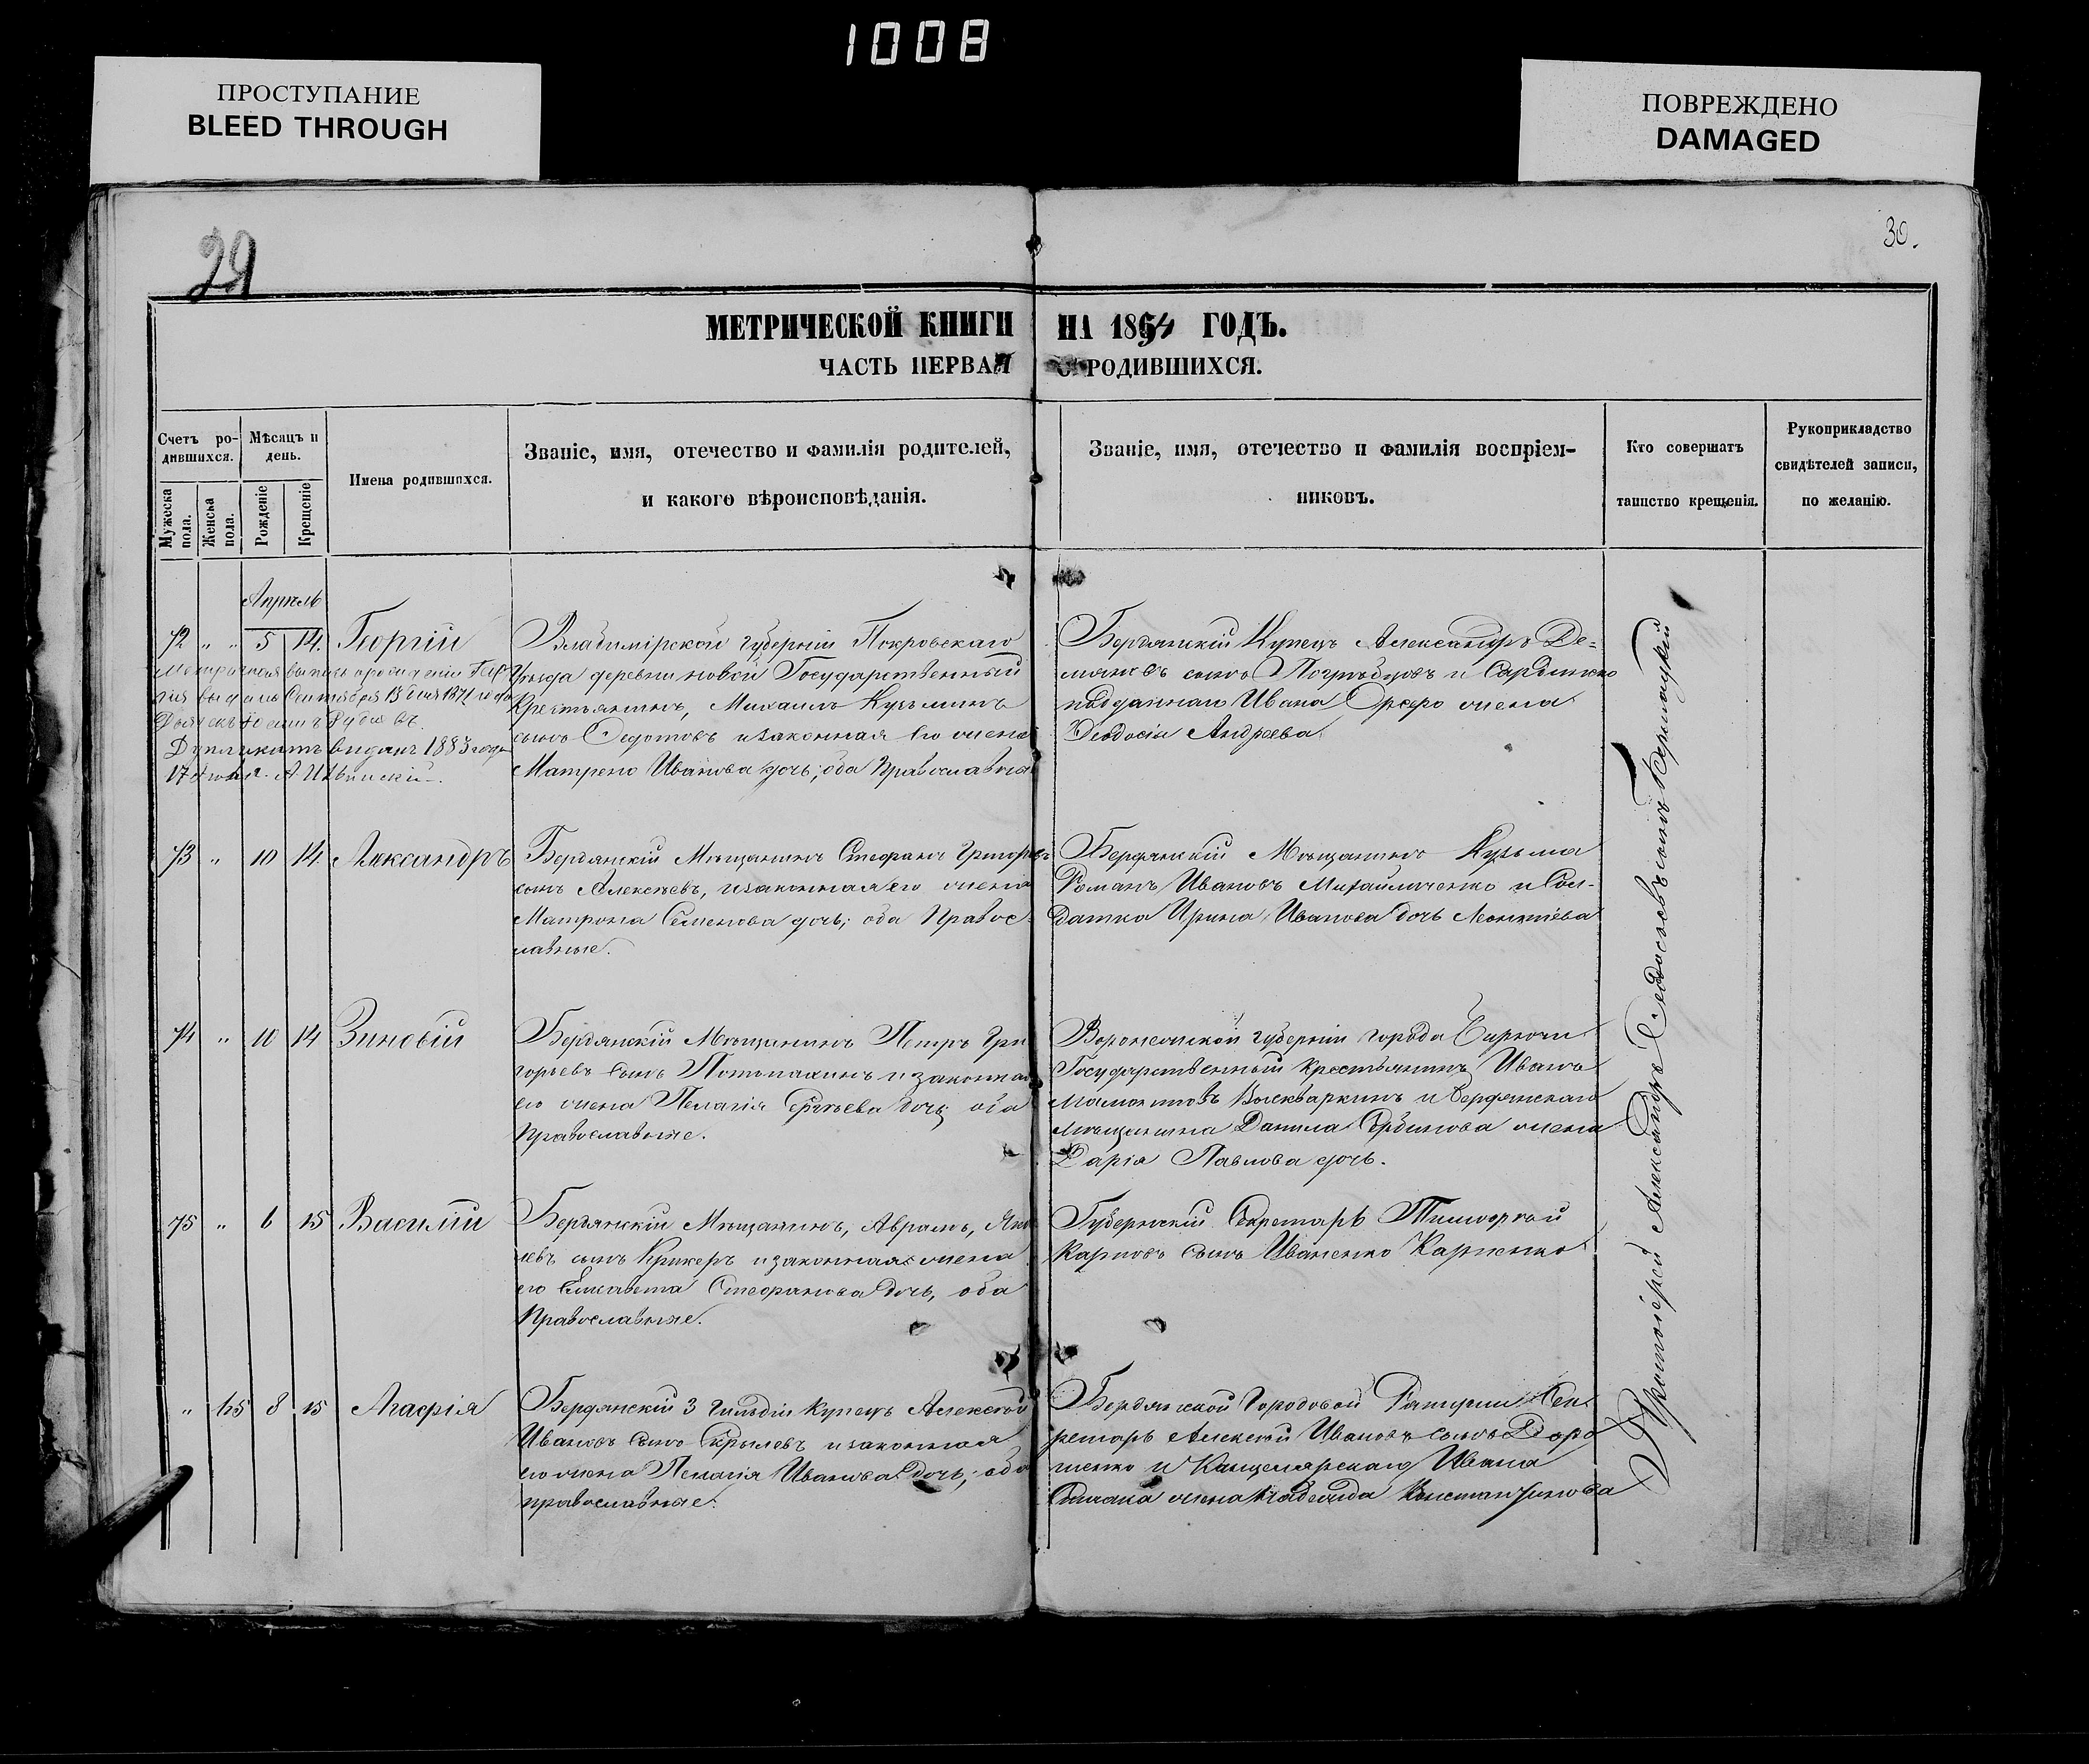 1008
ПРОСТУПАНИЕ
BLEED THROUGH
ПОВРЕЖДЕНО
DAMAGED
29
30.
МЕТРИЧЕСКОЙ КНИГИ НА 1854 ГОДЪ.
ЧАСТЬ ПЕРВАЯ О РОДИВШИХСЯ.
Счетъ ро-
дившихся.
Мужеска пола.
Женска пола.
Мѣсяцъ и
день.
Рожденіе
Крещеніе
Имена родившихся.
Званіе, имя, отечество и фамилія родителей,
и какого вѣроисповѣданія.
Званіе, имя, отечество и фамилія воспріем-
никовъ.
Кто совершатъ
таинство крещенія.
Рукоприкладство
свидѣтелей записи,
по желанію.
Апрѣль
72 " " 5 14. Георгій
Владимірской Губерніи Покровскаго
Уѣзда деревни новой Государственный
Крестьянинъ, Михаилъ Кузьминъ
сынъ Ѳедотовъ и законная его жена
Матрена Иванова дочь; оба Православные
Бердянскій Купецъ Александръ Де-
сынъ и Сардинско
подданнаго Ивана жена
Ѳеодосія Андреева.
выдана Сентября 15 дня 1871 года
Дубликатъ выданъ 1883 года
17
73 " 10 14 Александръ
Бердянскій Мѣщанинъ Стефанъ Григорьевъ
сынъ Алексѣевъ, и законная его жена
Матрона Семенова дочь; оба Правос-
лавные.
Бердянскій Мѣщанинъ Кузьма
Романъ Ивановъ Михайличенко и Сол-
датка Ирина Иванова дочь Леонтіева
74 " 10 14 Зиновій
Бердянскій Мѣщанинъ Петръ Гри
горьевъ сынъ и законная
его жена Пелагія Сергѣева дочь, оба
Православные.
Воронежской губерніи города Бирючи
Государственный Крестьянинъ Иванъ
и Бердянскаго
мѣщанина Данила жена
Дарія Павлова дочь.
75 " 6 15 Василій
Бердянскій Мѣщанинъ, Авраамъ, Яко
левъ сынъ Крикеръ и законная жена
его Елисавета Стефанова дочь, оба
Православные.
Губернскій Секретарь Тимофей
Карповъ сынъ Иваненко Карпенко
" 65 8 15 Агафія
Бердянскій 3 гильдіи Купецъ Алексѣй
Ивановъ сынъ Скрылевъ и законная
его жена Пелагія Иванова дочь, оба
православные.
Бердянской Городовой Ратуши Сек
ретарь Алексѣй Ивановъ сынъ Доро
шенко и Канцелярскаго Ивана
жена Надежда Константинова
Протоіерей Александръ